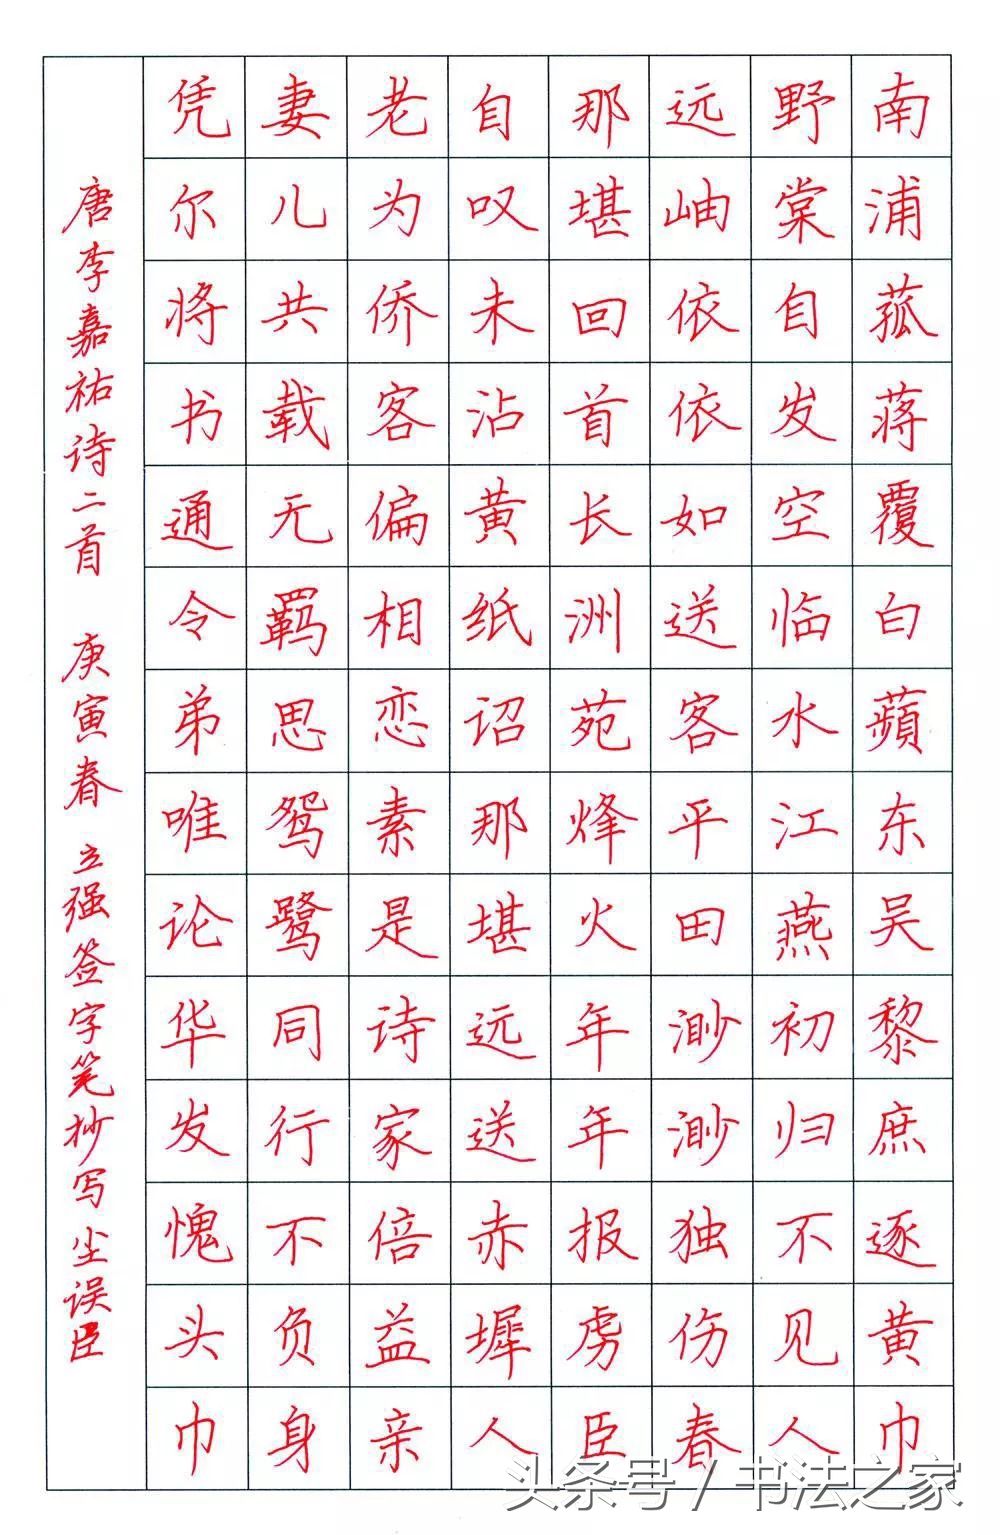 南浦菰蒋覆白蘋东吴黎庶逐黄巾
野棠自发空临水江燕初归不见人
远岫依依如送客平田渺渺独伤春
那堪回首长洲苑烽火年年报虏臣
自叹未沾黄纸诏那堪远送赤墀人
老为侨客偏相恋素是诗家倍益亲
妻儿共载无羁思鸳鹭同行不负身
凭尔将书通令弟唯论华发愧头巾
唐李嘉祐诗二首 庚寅春 立强签字笔抄写尘误臣
头条号/书法之家